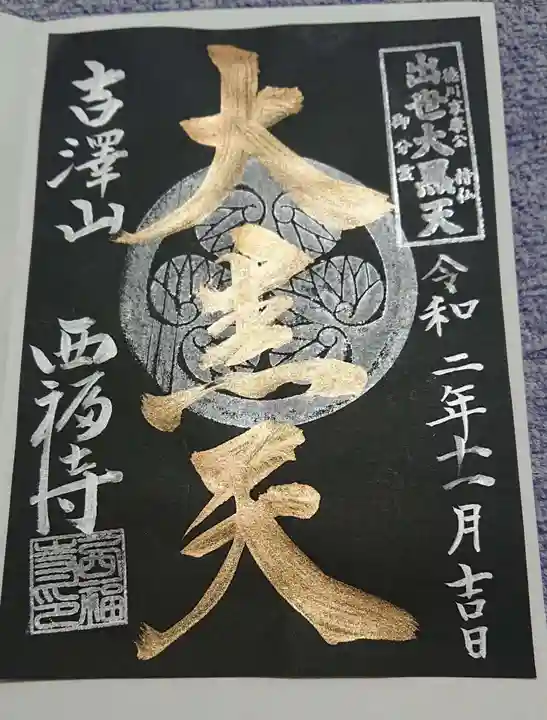 徳川家康公 持仏
出世大黒天
御分霊
令和二年十一月吉日
大黒天
吉澤山 西福寺
西福寺印